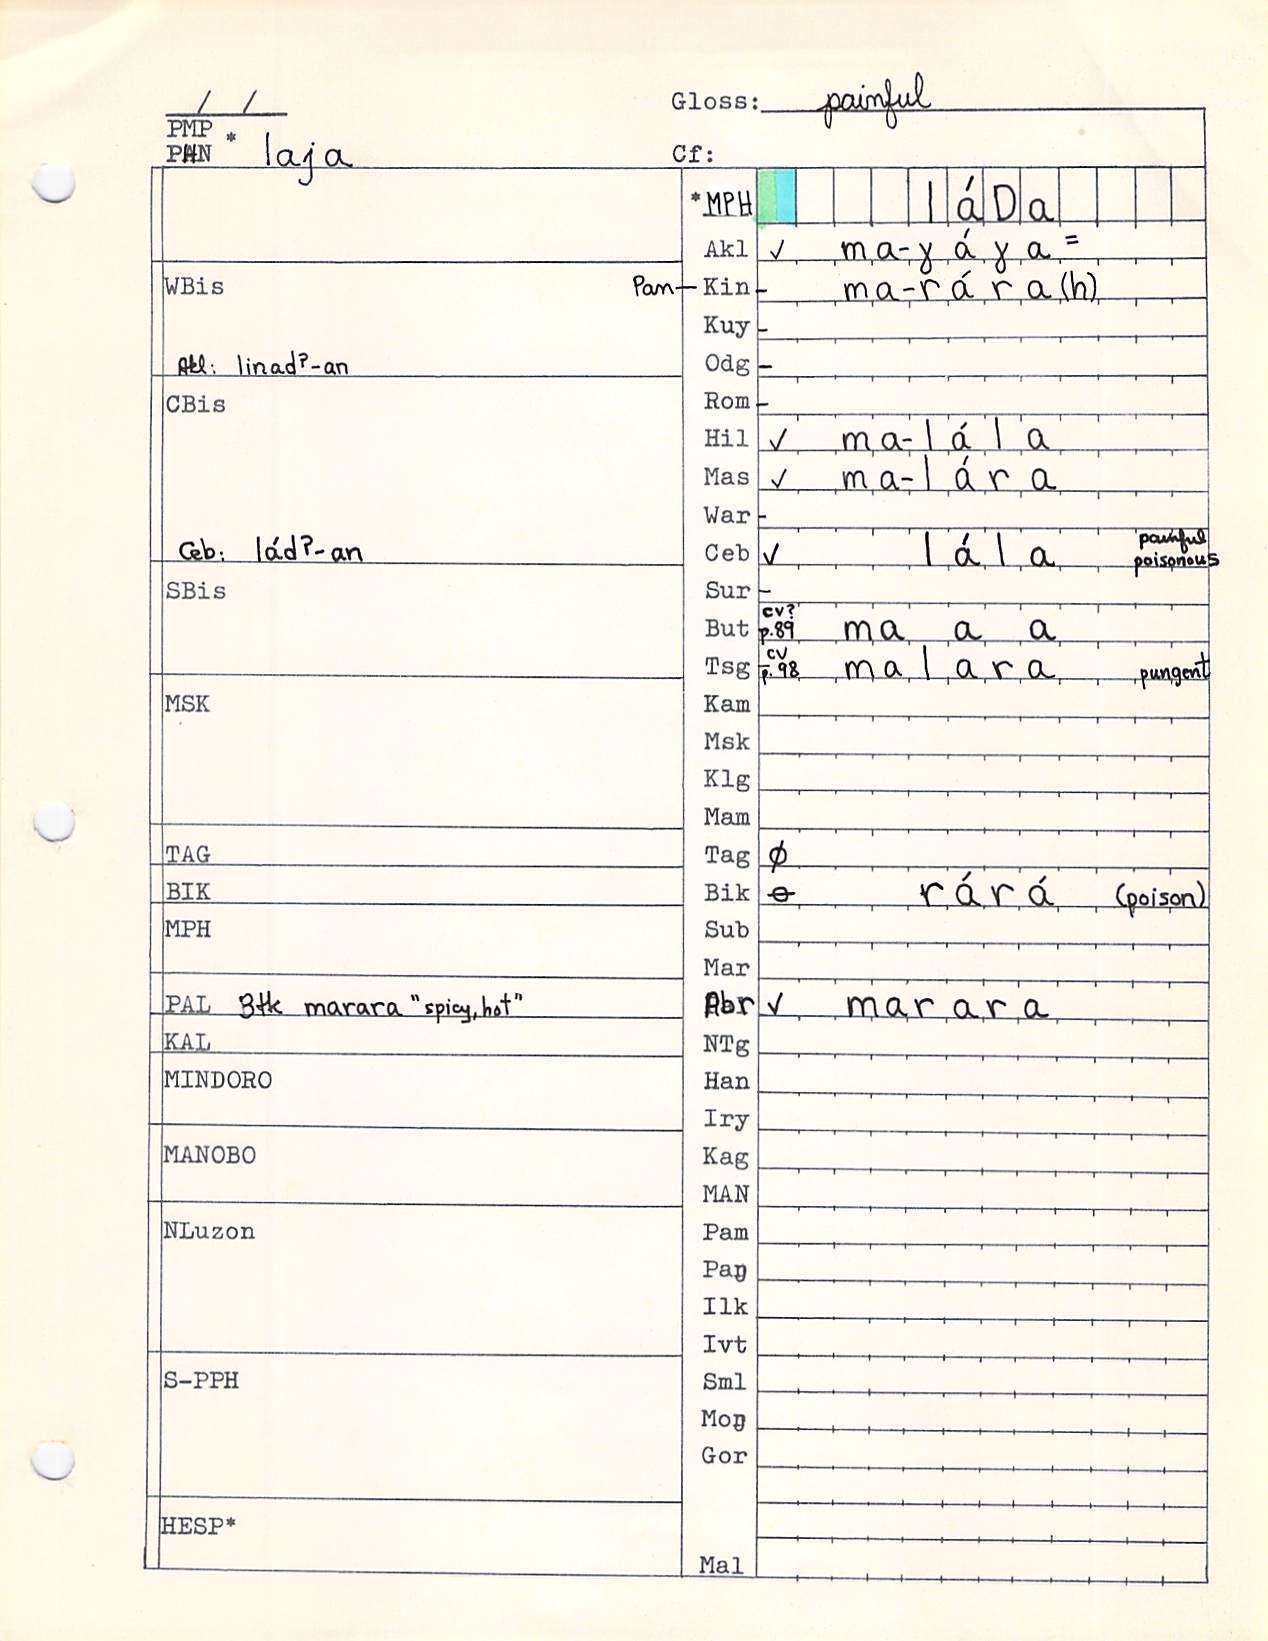 / /
Gloss: painful
PMP
PAN * laja
Cf:
*MPH láDa
Akl ✓ ma-ɣáɣa =
WBis
Pan — Kin - ma-rára(h)
Kuy -
Akl: linad?-an
Odg -
CBis
Rom -
Hil ✓ ma-lála
Mas ✓ ma-lára
War -
Ceb: lád?-an
Ceb ✓ lála painful poisonous
SBis
Sur -
But cv? p.89 ma a a
Tsg cv p.98 malara pungent
MSK
Kam
Msk
Klg
Mam
TAG
Tag ø
BIK
Bik ɵ rárá (poison)
MPH
Sub
Mar
PAL Btk marara "spicy, hot"
Abr ✓ marara
KAL
NTg
MINDORO
Han
Iry
MANOBO
Kag
MAN
NLuzon
Pam
Paŋ
Ilk
Ivt
S-PPH
Sml
Moŋ
Gor
HESP*
Mal